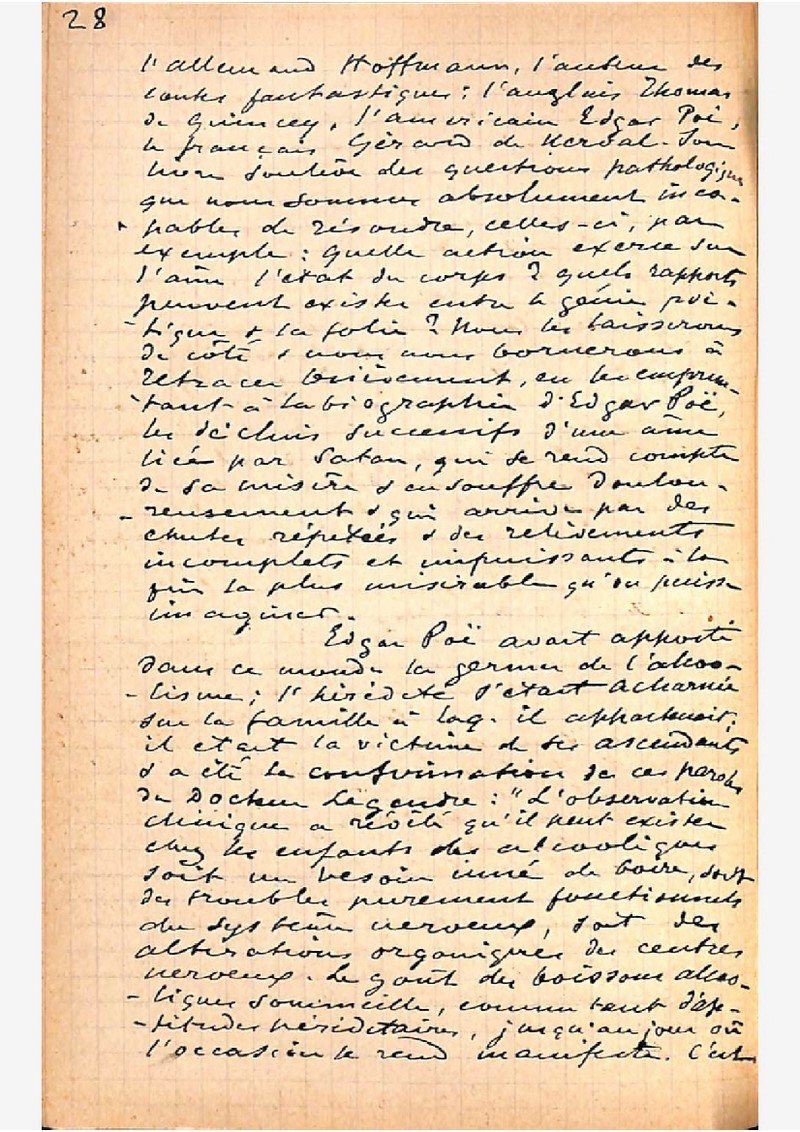 28
l'allemand Hoffmann, l'auteur des
contes fantastiques ; l'anglais Thomas
de Quincey, l'américain Edgar Poë,
le français Gérard de Nerval. Son
soulève des questions pathologiques
que nous sommes absolument inca-
pables de résoudre, celles-ci, par
exemple : quelle action exerce sur
l'âme l'état du corps ? quels rapports
peuvent exister entre le génie poé-
-tique & la folie ? Nous les laisserons
de côté & nous nous bornerons à
retracer brièvement, en les emprun-
-tant à la biographie d'Edgar Poë,
les déchus successifs d'une âme
liée par Satan, qui se rend compte
de sa misère & en souffre doulou-
-reusement & qui arrive par des
chutes répétées & des relèvements
incomplets et impuissants à la
fin la plus misérable qu'on puisse
imaginer.
Edgar Poë avait apporté
dans ce monde le germe de l'alcoo-
-lisme ; l'hérédité s'était acharnée
sur la famille à laq. il appartenait ;
il était la victime de ses ascendants
& a été la confirmation de ces paroles
du Docteur Legendre : "L'observation
clinique a révélé qu'il peut exister
chez les enfants des alcooliques
soit un besoin inné de boire, soit
des troubles purement fonctionnels
du système nerveux, soit des
altérations organiques des centres
nerveux. Le goût des boissons alcoo-
-liques sommeille, comme tant d'ap-
-titudes héréditaires, jusqu'au jour où
l'occasion le rend manifeste. C'est